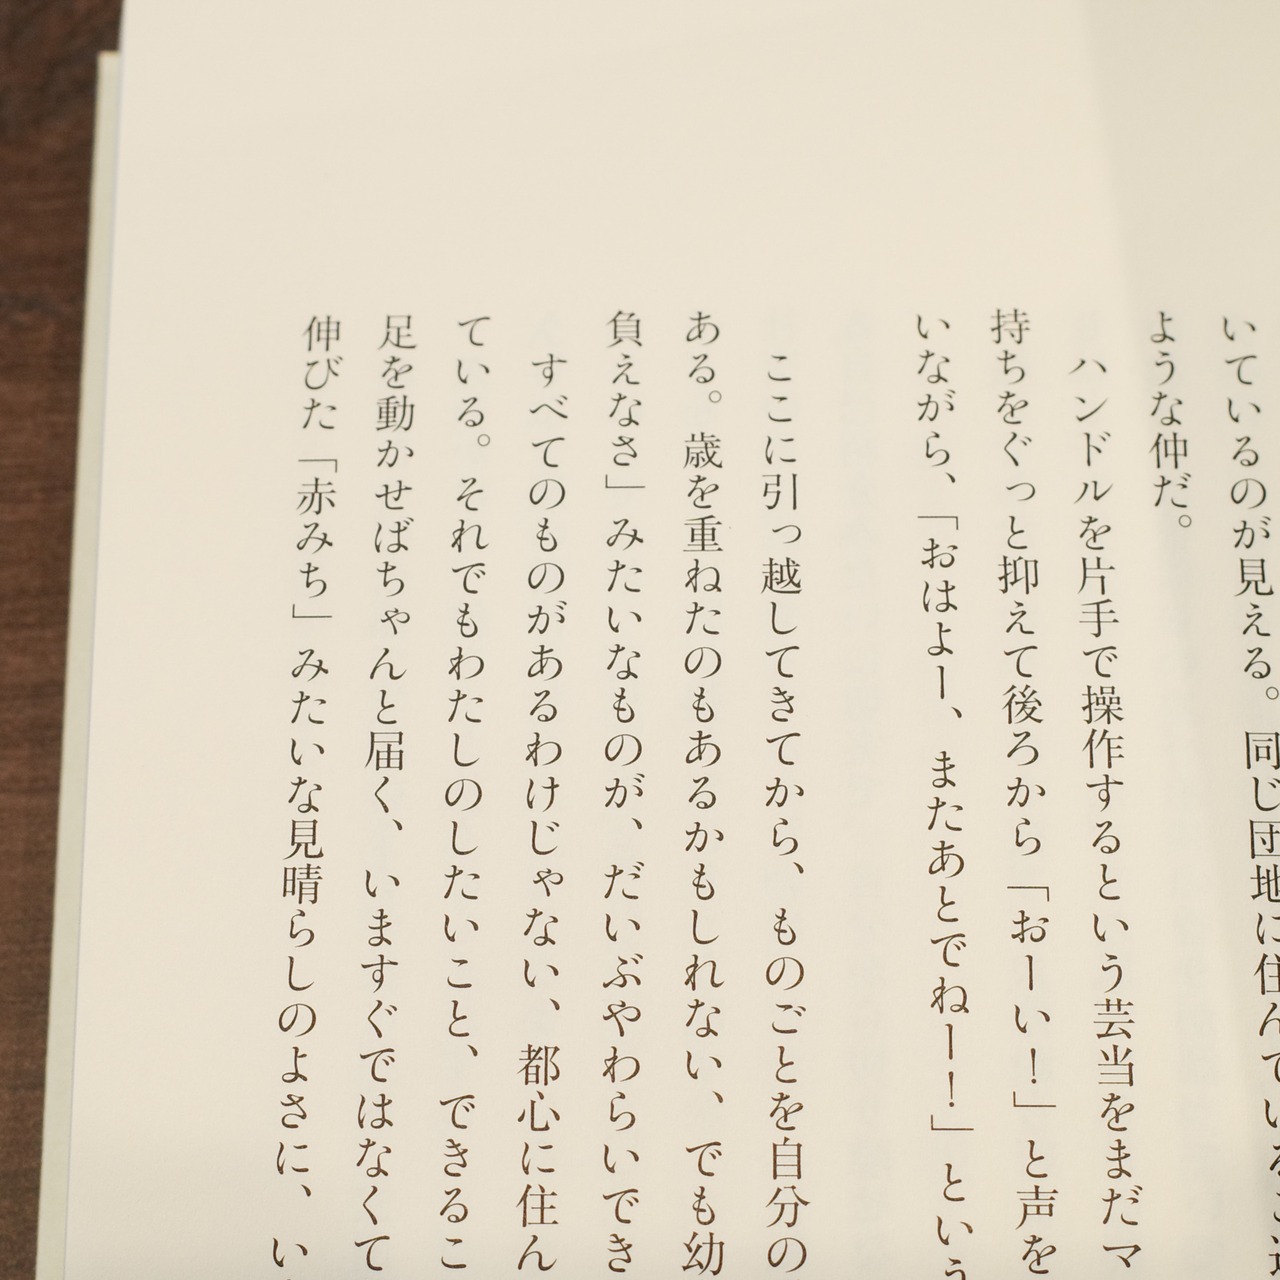 いているのが見える。同じ団地に住んでいるご
ような仲だ。
ハンドルを片手で操作するという芸当をまだマ
持ちをぐっと抑えて後ろから「おーい！」と声を
いながら、「おはよー、またあとでねー！」という
ここに引っ越してきてから、ものごとを自分の
ある。歳を重ねたのもあるかもしれない、でも幼
負えなさ」みたいなものが、だいぶやわらいでき
すべてのものがあるわけじゃない、都心に住ん
ている。それでもわたしのしたいこと、できるこ
足を動かせばちゃんと届く、いますぐではなくて
伸びた「赤みち」みたいな見晴らしのよさに、い